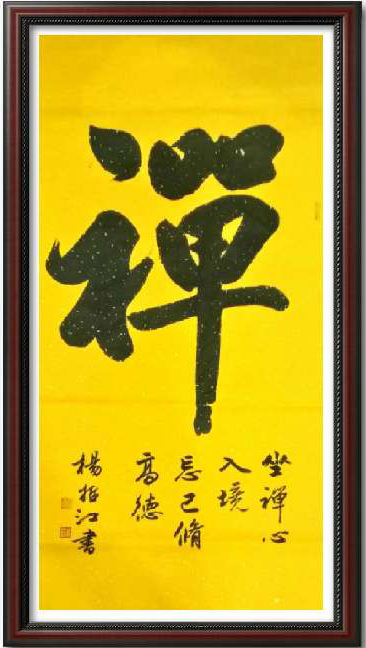 禪
坐禪心
入境
忘己脩
高德
楊振江書